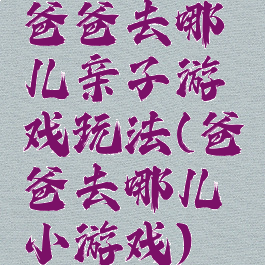 爸爸去哪
儿亲子游
戏玩法(爸
爸去哪儿
小游戏)